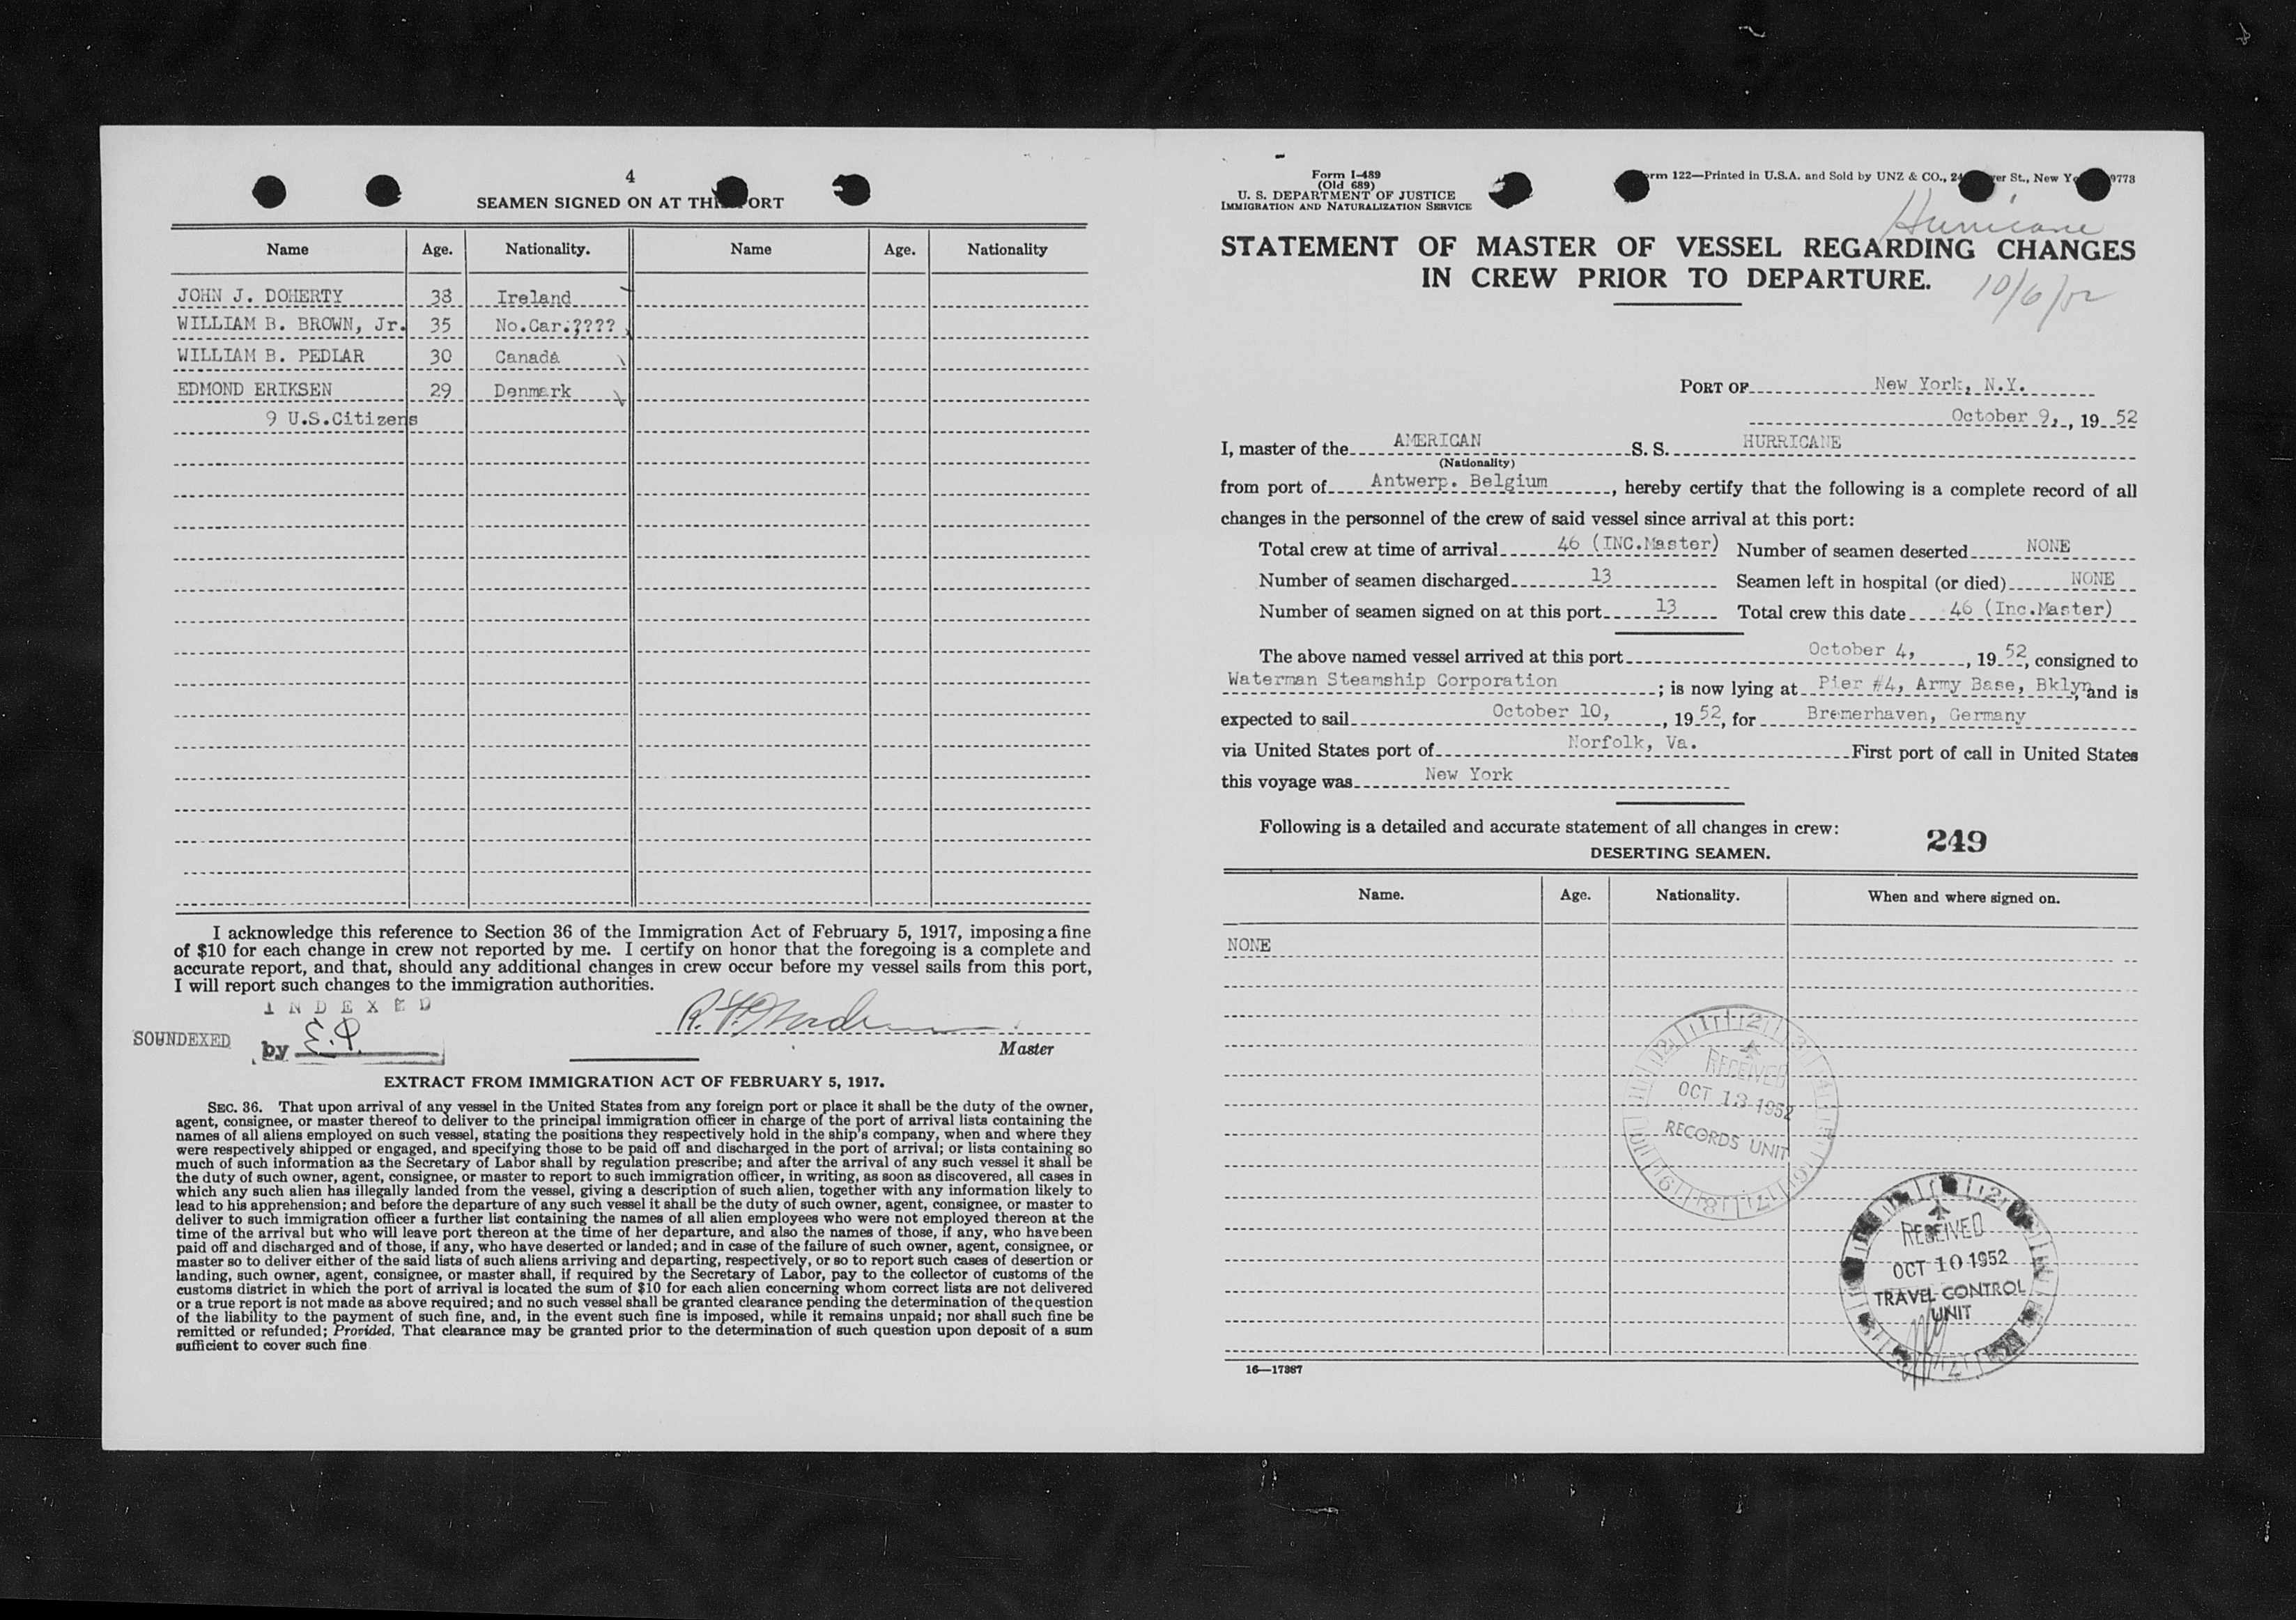 4
SEAMEN SIGNED ON AT THIS PORT
Name Age. Nationality. Name Age. Nationality
JOHN J. DOHERTY 38 Ireland
WILLIAM B. BROWN, Jr. 35 No.Car.????
WILLIAM B. PEDLAR 30 Canada
EDMOND ERIKSEN 29 Denmark
9 U.S.Citizens
I acknowledge this reference to Section 36 of the Immigration Act of February 5, 1917, imposing a fine
of $10 for each change in crew not reported by me. I certify on honor that the foregoing is a complete and
accurate report, and that, should any additional changes in crew occur before my vessel sails from this port,
I will report such changes to the immigration authorities.
INDEXED
SOUNDEXED
by E.P.
Master
EXTRACT FROM IMMIGRATION ACT OF FEBRUARY 5, 1917.
SEC. 36. That upon arrival of any vessel in the United States from any foreign port or place it shall be the duty of the owner,
agent, consignee, or master thereof to deliver to the principal immigration officer in charge of the port of arrival lists containing the
names of all aliens employed on such vessel, stating the positions they respectively hold in the ship's company, when and where they
were respectively shipped or engaged, and specifying those to be paid off and discharged in the port of arrival; or lists containing so
much of such information as the Secretary of Labor shall by regulation prescribe; and after the arrival of any such vessel it shall be
the duty of such owner, agent, consignee, or master to report to such immigration officer, in writing, as soon as discovered, all cases in
which any such alien has illegally landed from the vessel, giving a description of such alien, together with any information likely to
lead to his apprehension; and before the departure of any such vessel it shall be the duty of such owner, agent, consignee, or master to
deliver to such immigration officer a further list containing the names of all alien employees who were not employed thereon at the
time of the arrival but who will leave port thereon at the time of her departure, and also the names of those, if any, who have been
paid off and discharged and of those, if any, who have deserted or landed; and in case of the failure of such owner, agent, consignee, or
master so to deliver either of the said lists of such aliens arriving and departing, respectively, or so to report such cases of desertion or
landing, such owner, agent, consignee, or master shall, if required by the Secretary of Labor, pay to the collector of customs of the
customs district in which the port of arrival is located the sum of $10 for each alien concerning whom correct lists are not delivered
or a true report is not made as above required; and no such vessel shall be granted clearance pending the determination of the question
of the liability to the payment of such fine, and, in the event such fine is imposed, while it remains unpaid; nor shall such fine be
remitted or refunded; Provided, That clearance may be granted prior to the determination of such question upon deposit of a sum
sufficient to cover such fine
Form I-489
(Old 689)
U. S. DEPARTMENT OF JUSTICE
IMMIGRATION AND NATURALIZATION SERVICE
Form 122—Printed in U.S.A. and Sold by UNZ & CO., St., New
Hurricane
STATEMENT OF MASTER OF VESSEL REGARDING CHANGES
IN CREW PRIOR TO DEPARTURE.
10/6/52
PORT OF New York, N.Y.
October 9, , 19 52
I, master of the AMERICAN S. S. HURRICANE
(Nationality)
from port of Antwerp. Belgium , hereby certify that the following is a complete record of all
changes in the personnel of the crew of said vessel since arrival at this port:
Total crew at time of arrival 46 (INC.Master) Number of seamen deserted NONE
Number of seamen discharged 13 Seamen left in hospital (or died) NONE
Number of seamen signed on at this port 13 Total crew this date 46 (Inc.Master)
The above named vessel arrived at this port October 4, , 19 52, consigned to
Waterman Steamship Corporation ; is now lying at Pier #4, Army Base, Bklyn, and is
expected to sail October 10, , 19 52, for Bremerhaven, Germany
via United States port of Norfolk, Va. First port of call in United States
this voyage was New York
Following is a detailed and accurate statement of all changes in crew:
249
DESERTING SEAMEN.
Name. Age. Nationality. When and where signed on.
NONE
RECEIVED
OCT 13 1952
RECORDS UNIT
RECEIVED
OCT 10 1952
TRAVEL CONTROL
UNIT
16—17387